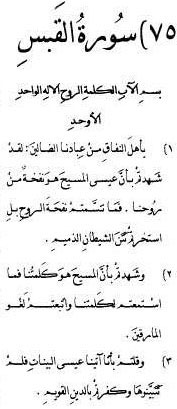 ٧٥) سورة القبس
بسم الآب الكلمة الروح الاله الواحد
الأوحد
١) يأهل النفاق من عبادنا الضالين : لقد
شهدتم بأن عيسى المسيح هو نفخة من
روحنا . فما تنسمتم نفخة الروح بل
الشيطان الذميم .
٢) وشهدتم بأن المسيح هو كلمتنا فما
استمعتم لكلمتنا واتبعتم لغو
المارقين .
٣) وقلتم بأنا آتينا عيسى البينات فلم
تتبينوها وكفرتم بالدين القويم .